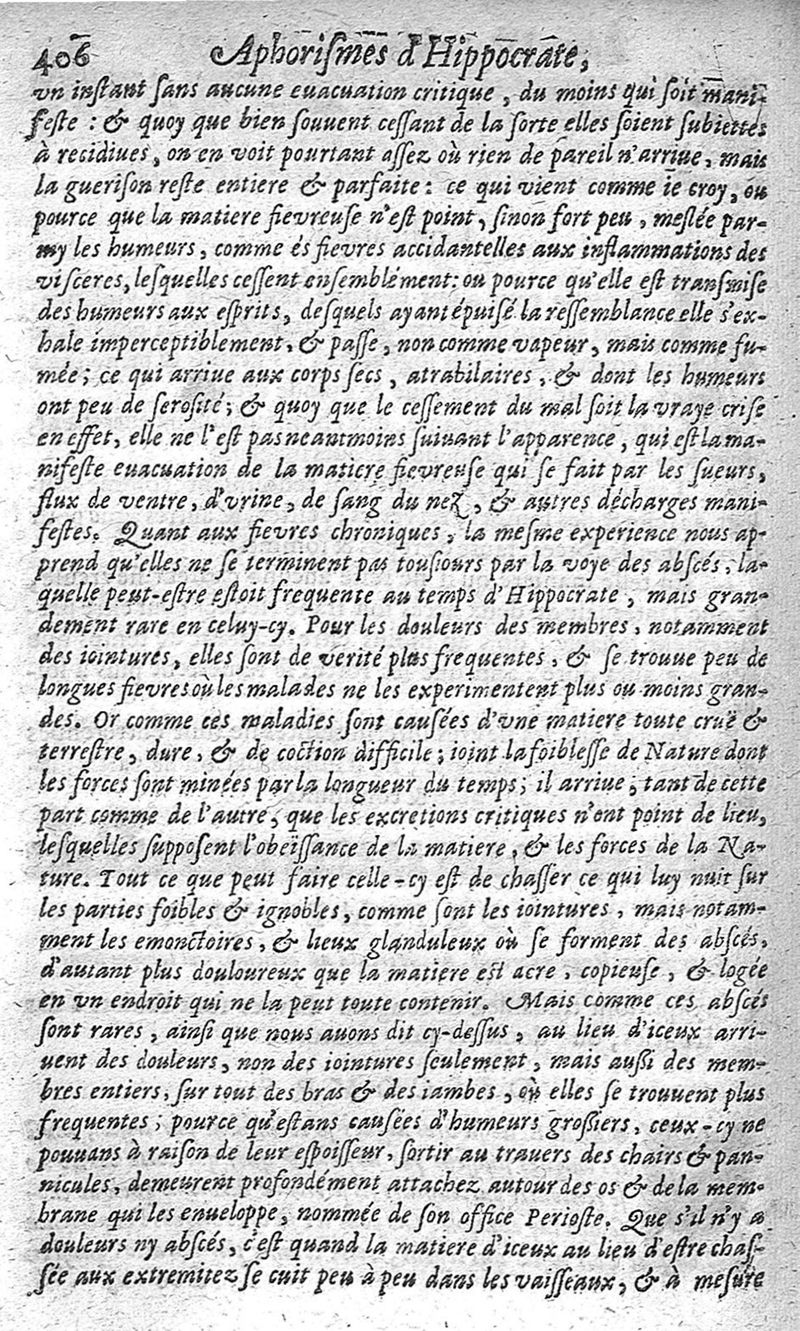 406 Aphorismes d'Hippocrate,
vn instant sans aucune euacuation critique, du moins qui soit mani-
feste : & quoy que bien souuent cessant de la sorte elles soient subiettes
à recidiues, on en voit pourtant assez où rien de pareil n'arriue, mais
la guerison reste entiere & parfaite : ce qui vient comme ie croy, ou
pource que la matiere fievreuse n'est point, sinon fort peu, meslée par-
my les humeurs, comme és fievres accidantelles aux inflammations des
visceres, lesquelles cessent ensemblément: ou pource qu'elle est transmise
des humeurs aux esprits, desquels ayant épuisé la ressemblance elle s'ex-
hale imperceptiblement, & passe, non comme vapeur, mais comme fu-
mée; ce qui arriue aux corps secs, atrabilaires, & dont les humeurs
ont peu de serosité; & quoy que le cessement du mal soit la vraye crise
en effet, elle ne l'est pas neantmoins suiuant l'apparence, qui est la ma-
nifeste euacuation de la matiere fievreuse qui se fait par les sueurs,
flux de ventre, d'vrine, de sang du nez, & autres décharges mani-
festes. Quant aux fievres chroniques, la mesme experience nous ap-
prend qu'elles ne se terminent pas tousiours par la voye des abscés, la-
quelle peut-estre estoit frequente au temps d'Hippocrate, mais gran-
dement rare en celuy-cy. Pour les douleurs des membres, notamment
des iointures, elles sont de verité plus frequentes, & se trouue peu de
longues fievres où les malades ne les experimentent plus ou moins gran-
des. Or comme ces maladies sont causées d'vne matiere toute cruë &
terrestre, dure, & de coction difficile; ioint la foiblesse de Nature dont
les forces sont minées par la longueur du temps; il arriue, tant de cette
part comme de l'autre, que les excretions critiques n'ont point de lieu,
lesquelles supposent l'obeïssance de la matiere, & les forces de la Na-
ture. Tout ce que peut faire celle-cy est de chasser ce qui luy nuit sur
les parties foibles & ignobles, comme sont les iointures, mais notam-
ment les emonctoires, & lieux glanduleux où se forment des abscés,
d'autant plus douloureux que la matiere est acre, copieuse, & logée
en vn endroit qui ne la peut toute contenir. Mais comme ces abscés
sont rares, ainsi que nous auons dit cy-dessus, au lieu d'iceux arri-
uent des douleurs, non des iointures seulement, mais aussi des mem-
bres entiers, sur tout des bras & des iambes, où elles se trouuent plus
frequentes; pource qu'estans causées d'humeurs grossiers, ceux-cy ne
pouuans à raison de leur espoisseur, sortir au trauers des chairs & pan-
nicules, demeurent profondément attachez autour des os & de la mem-
brane qui les enueloppe, nommée de son office Perioste. Que s'il n'y a
douleurs ny abscés, c'est quand la matiere d'iceux au lieu d'estre chas-
sée aux extremitez se cuit peu à peu dans les vaisseaux, & à mesure